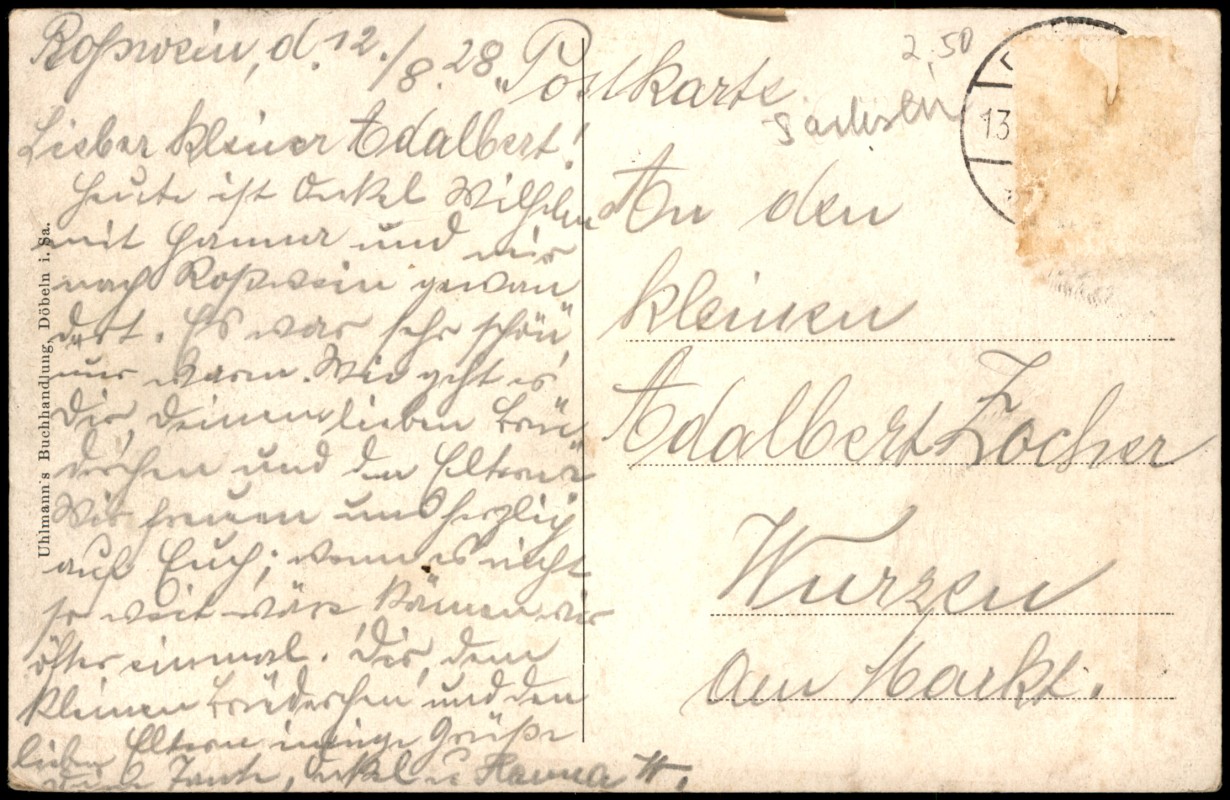 Roßwein, d. 12./8. 28.
Lieber kleiner Adalbert!
Heute ist Onkel Wilhelm
mit Hanna und mir
nach Roßwein gewan
dert. Es war sehr schön,
nur warm. Wie geht es
Dir, Deinem lieben Brü-
derchen und den Eltern?
Wir freuen uns herzlich
auf Euch; wenn es nicht
so weit wäre kämen wir
öfter einmal. Dir, dem
kleinen Brüderchen und den
lieben Eltern innige Grüße
Deine Tante, Onkel u. Hanna H.
Uhlmann's Buchhandlung, Döbeln i. Sa.
2,50
Postkarte
Sachsen
13
An den
kleinen
Adalbert Zocher
Wurzen
am Markt.